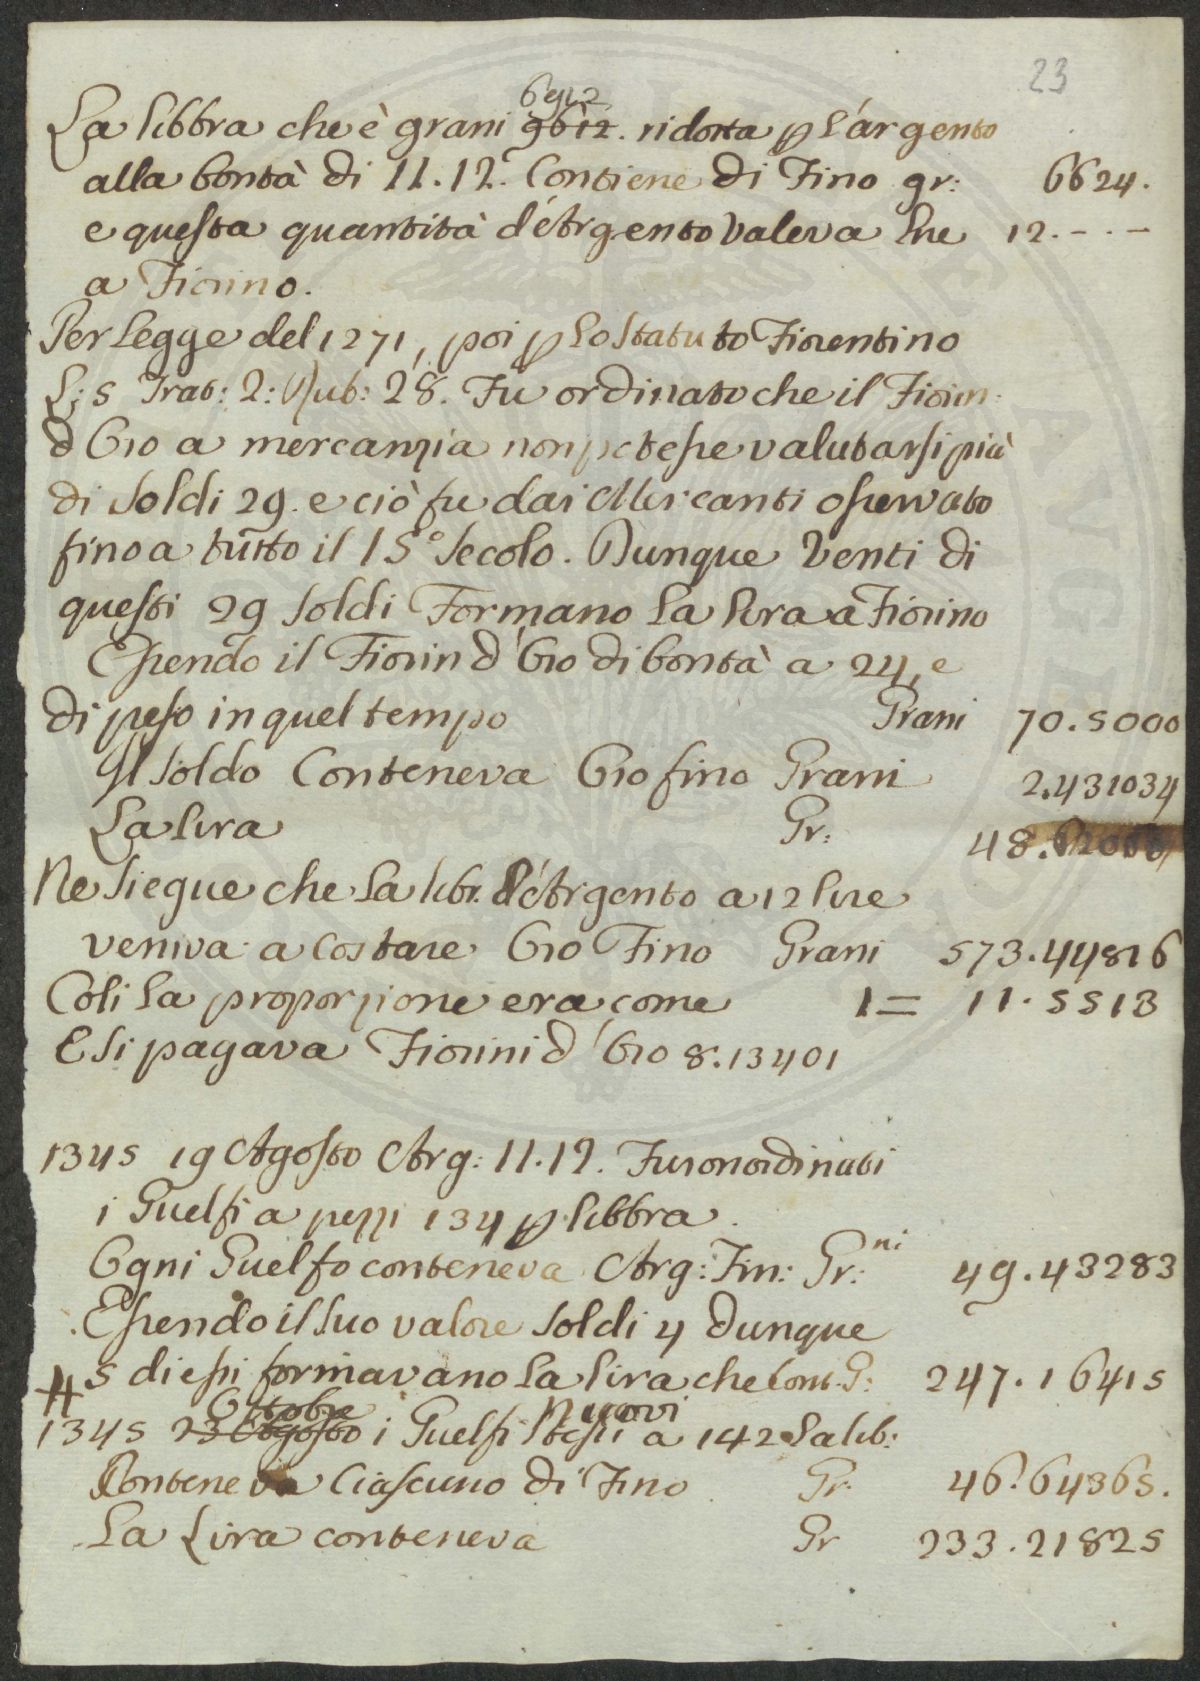 23
6912
La libbra che è grani 9612. ridotta p l'argento
alla bontà di 11.12. Contiene di Fino gr: 6624.
e questa quantità d'Argento Valeva lire 12.-.-
a Fiorino.
Per Legge del 1271, poi p lo Statuto Fiorentino
L: 5 Trat: 2: Rub: 28. Fu ordinato che il Fiorin
d'Oro a mercanzia non potesse valutarsi più
di Soldi 29. e ciò fu dai Mercanti osservato
fino a tutto il 15° Secolo. Dunque Venti di
questi 29 Soldi Formano La lira a Fiorino
Essendo il Fiorin d'Oro di bontà a 24, e
di peso in quel tempo Grani 70.5000
Il Soldo Conteneva Oro fino Grani 2.431034
La lira Gr: 48.
Ne siegue che La libr. d'Argento a 12 lire
veniva a costare Oro Fino Grani 573.44816
Così La proporzione era come 1= 11.5513
E si pagava Fiorini d'Oro 8.13401
1345 19 Agosto Arg: 11.12. Furon ordinati
i Guelfi a pezzi 134 p libbra.
Ogni Guelfo conteneva Arg: Fin: Gr:ni 49.43283
Essendo il suo valore Soldi 4 dunque
5 di essi formavano La lira che Cont. G: 247.16415
Ottobre Nuovi
1345 23 Agosto i Guelfi stessi a 142 La lib:
Conteneva Ciascuno di Fino Gr. 46.64365.
La Lira conteneva Gr 233.21825